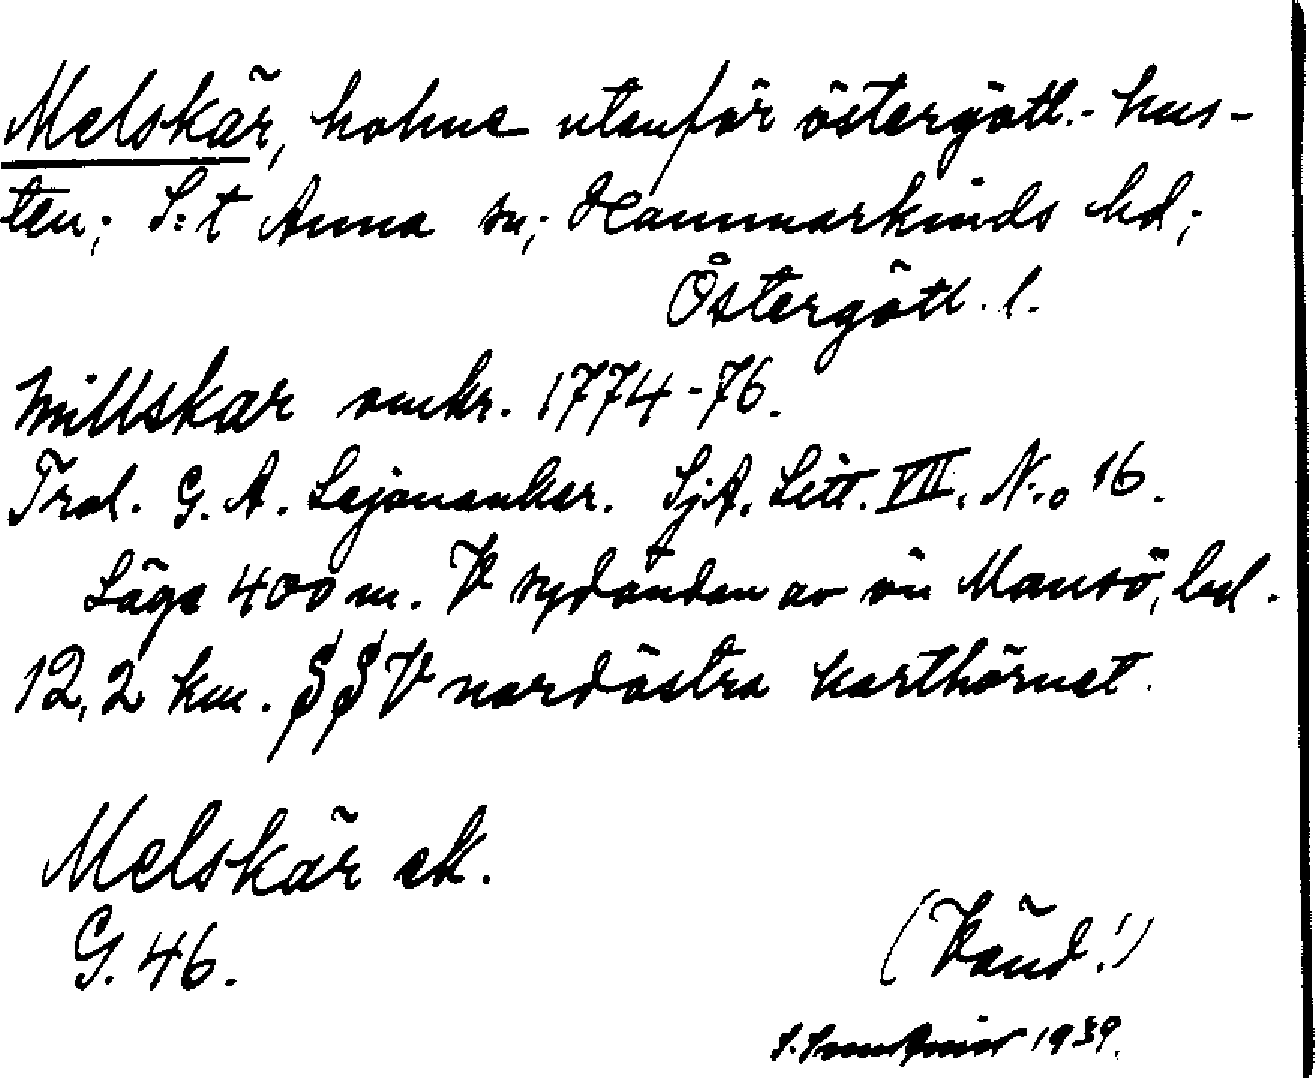 Melskär, holme utanför östergötl.-kus-
ten; S:t Anna sn; Hammarkinds hd;
Östergötl. l.
Millskar omkr. 1774-76.
Trol. G. A. Lejonanker. SjA. Litt. VII. N:o 16.
Läge 400 m. V sydändan av ön Mansö, bel.
12,2 km. SSV nordöstra karthörnet.
Melskär ek.
G. 46.
(Vänd!)
1939.